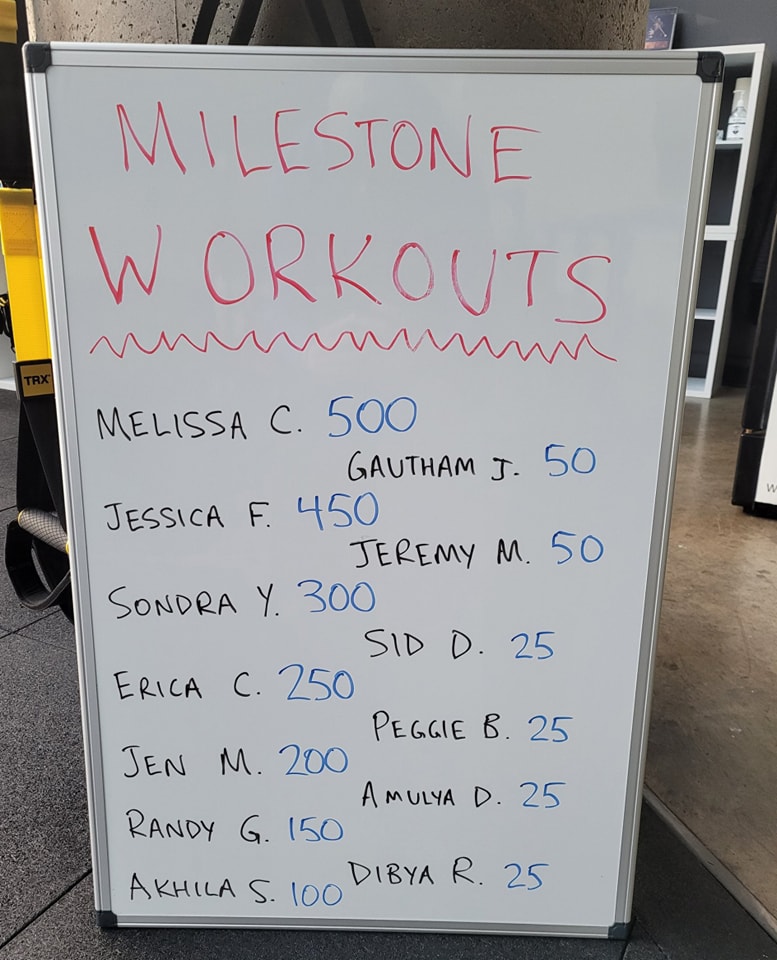 MILESTONE
WORKOUTS
MELISSA C. 500
GAUTHAM J. 50
JESSICA F. 450
JEREMY M. 50
SONDRA Y. 300
SID D. 25
ERICA C. 250
PEGGIE B. 25
JEN M. 200
AMULYA D. 25
RANDY G. 150
DIBYA R. 25
AKHILA S. 100
TRX
W